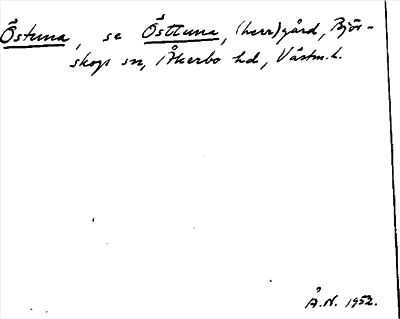 Östuna, se Östtuna, (herr)gård, Björ-
skogs sn, Åkerbo hd, Västm. l.
Å.N. 1952.